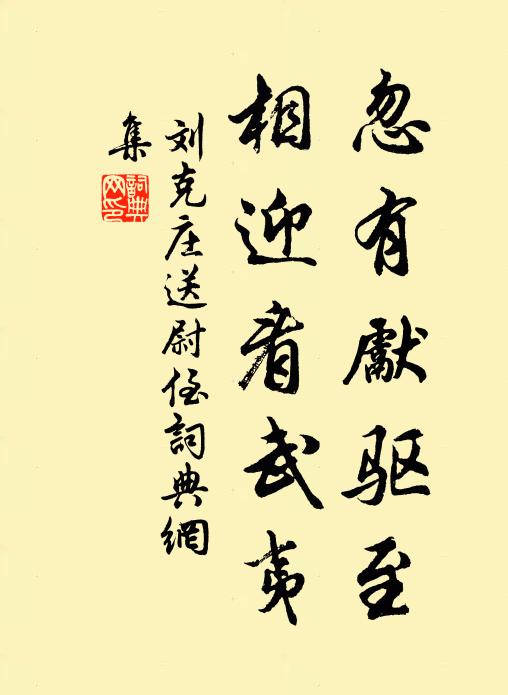 忽有獻驱至
相迎看武夷
刘克庄送尉侄詞典網
集
詞典網印